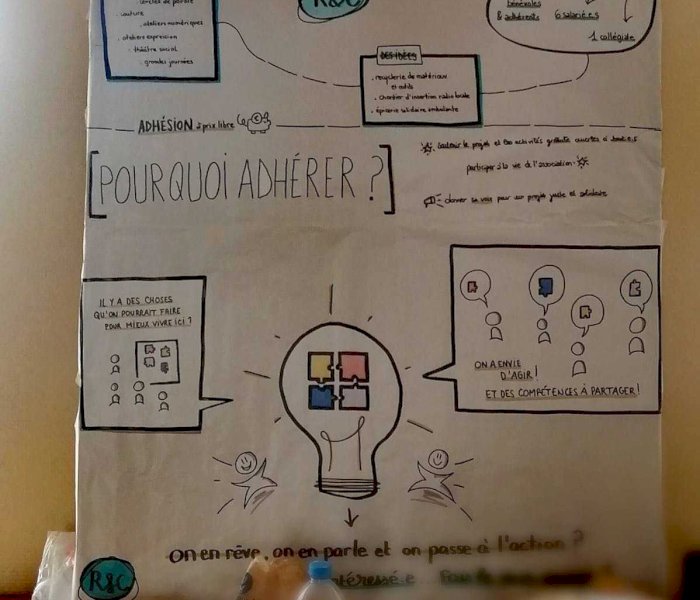 cercles de parole
couture
ateliers numériques
ateliers expression
théâtre social
grandes journées
R&C
bénévoles
& adhérents
6 salarié.e.s
1 collégide
DES IDÉES
recyclerie de matériaux
et outils
chantier d'insertion radio locale
épicerie solidaire ambulante
ADHÉSION à prix libre
[POURQUOI ADHÉRER ?]
Soutenir le projet et les activités gratuites ouvertes à tout.e.s
participer à la vie de l'association
donner sa voix pour un projet juste et solidaire
IL Y A DES CHOSES
QU'ON POURRAIT FAIRE
POUR MIEUX VIVRE ICI ?
ON A ENVIE
D'AGIR !
ET DES COMPÉTENCES À PARTAGER !
on en rêve, on en parle et on passe à l'action ?
R&C
intéressé.e